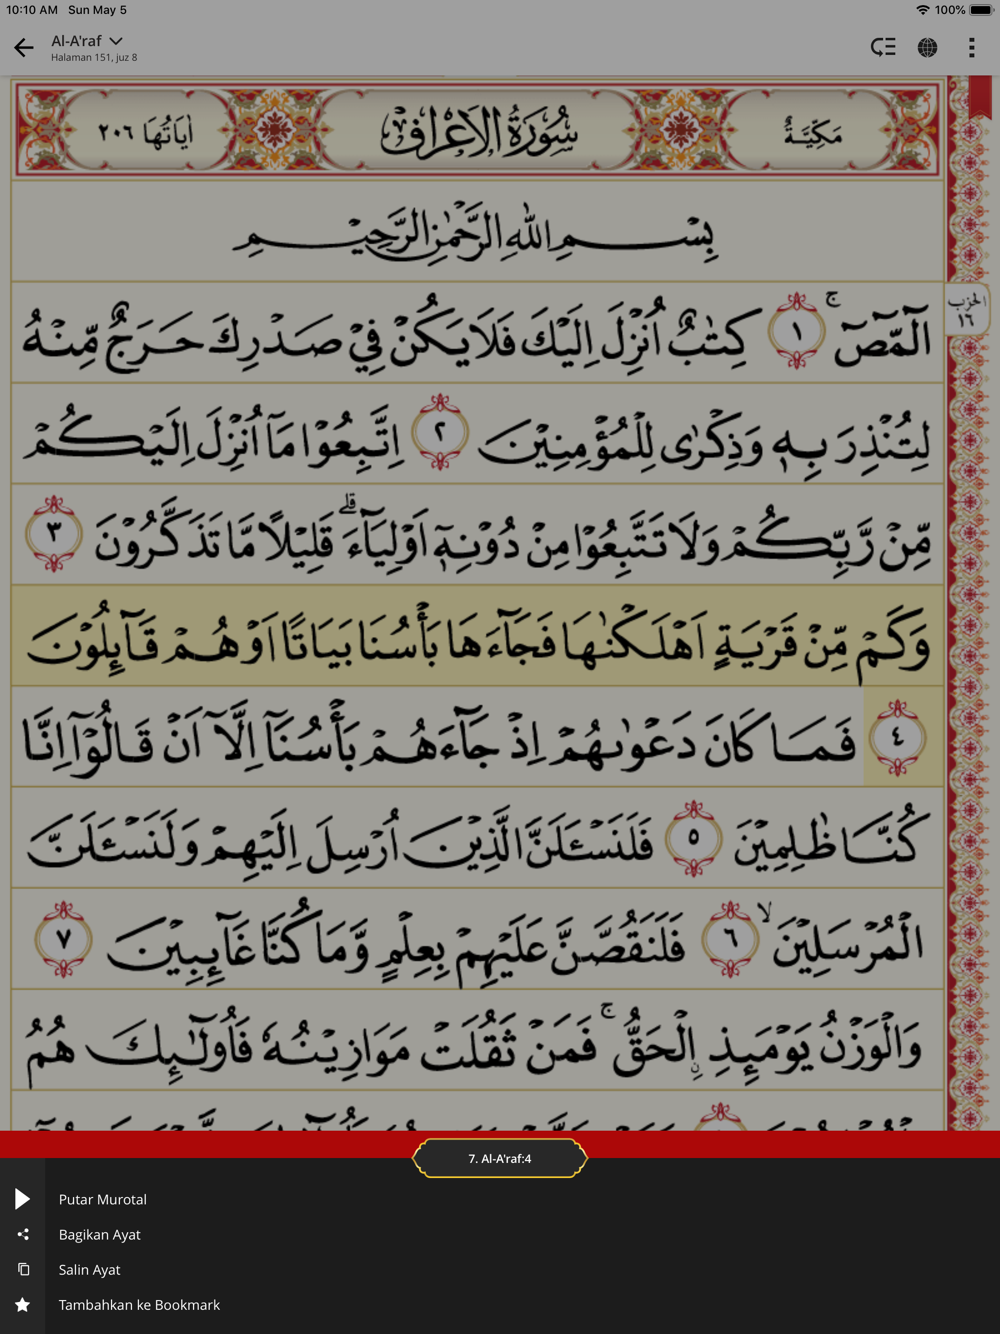 10:10 AM Sun May 5
100%
Al-A'raf
Halaman 151, juz 8
مَكِّيَّةٌ
سُوْرَةُ الْاَعْرَافِ
اٰيَاتُهَا ٢٠٦
بِسْمِ اللّٰهِ الرَّحْمٰنِ الرَّحِيْمِ
الحزب
١٦
الۤمّۤصۤ ۚ ١ كِتٰبٌ اُنْزِلَ اِلَيْكَ فَلَا يَكُنْ فِيْ صَدْرِكَ حَرَجٌ مِّنْهُ
لِتُنْذِرَ بِهٖ وَذِكْرٰى لِلْمُؤْمِنِيْنَ ٢ اِتَّبِعُوْا مَآ اُنْزِلَ اِلَيْكُمْ
مِّنْ رَّبِّكُمْ وَلَا تَتَّبِعُوْا مِنْ دُوْنِهٖٓ اَوْلِيَاۤءَ ۗ قَلِيْلًا مَّا تَذَكَّرُوْنَ ٣
وَكَمْ مِّنْ قَرْيَةٍ اَهْلَكْنٰهَا فَجَاۤءَهَا بَأْسُنَا بَيَاتًا اَوْ هُمْ قَاۤىِٕلُوْنَ
٤ فَمَا كَانَ دَعْوٰىهُمْ اِذْ جَاۤءَهُمْ بَأْسُنَآ اِلَّآ اَنْ قَالُوْٓا اِنَّا
كُنَّا ظٰلِمِيْنَ ٥ فَلَنَسْـَٔلَنَّ الَّذِيْنَ اُرْسِلَ اِلَيْهِمْ وَلَنَسْـَٔلَنَّ
الْمُرْسَلِيْنَ ۙ ٦ فَلَنَقُصَّنَّ عَلَيْهِمْ بِعِلْمٍ وَّمَا كُنَّا غَاۤىِٕبِيْنَ ٧
وَالْوَزْنُ يَوْمَىِٕذِ ِۨالْحَقُّ ۚ فَمَنْ ثَقُلَتْ مَوَازِيْنُهٗ فَاُولٰۤىِٕكَ هُمُ
7. Al-A'raf:4
Putar Murotal
Bagikan Ayat
Salin Ayat
Tambahkan ke Bookmark